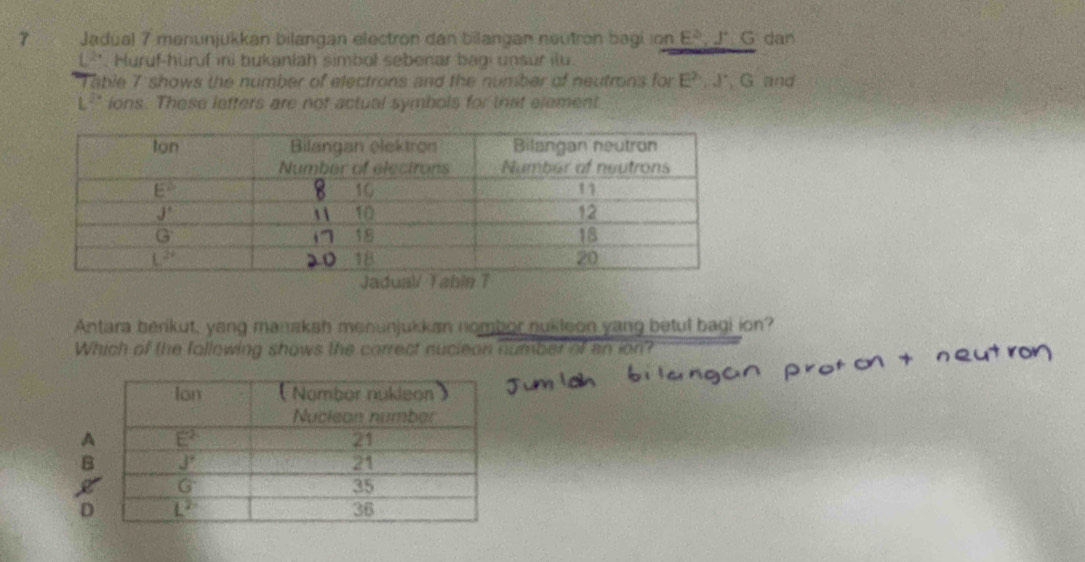 7 Jadual 7 menunjukkan bilangan electron dan bilangan neutron bagi ion E²⁻, J⁺, G⁻ dan
L²⁺. Huruf-huruf ini bukanlah simbol sebenar bagi unsur itu.
Table 7 shows the number of electrons and the number of neutrons for E²⁻, J⁺, G⁻ and
L²⁺ ions. These letters are not actual symbols for that element
Ion Bilangan elektron Bilangan neutron
Number of electrons Number of neutrons
E²⁻ 8 10 11
J⁺ 11 10 12
G⁻ 17 18 18
L²⁺ 20 18 20
Jadual/ Table 7
Antara berikut, yang manakah menunjukkan nombor nukleon yang betul bagi ion?
Which of the following shows the correct nucleon number of an ion?
Jumlah bilangan proton + neutron
Ion (Nombor nukleon)
Nucleon number
A E²⁻ 21
B J⁺ 21
C G⁻ 35
D L²⁺ 36